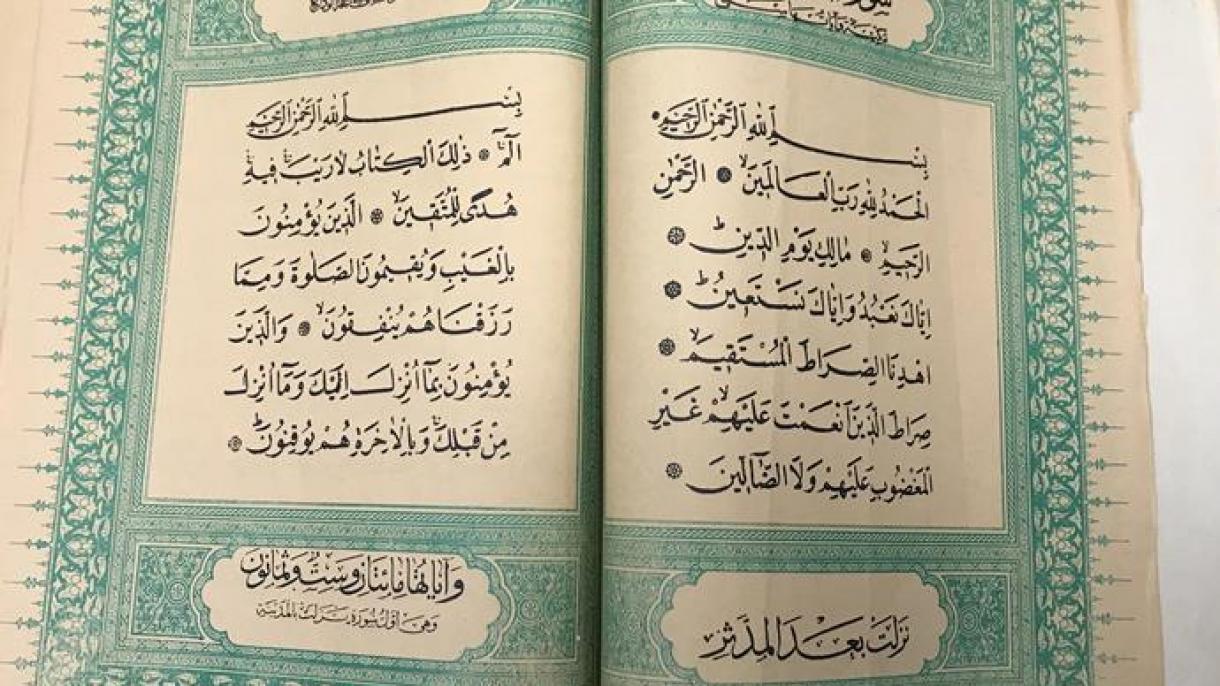 بِسْمِ اللهِ الرَّحْمٰنِ الرَّحِيمِ
اَلْحَمْدُ لِلّٰهِ رَبِّ الْعَالَمِينَۙ ۞ اَلرَّحْمٰنِ
الرَّحِيمِۙ ۞ مَالِكِ يَوْمِ الدِّينِۜ ۞
اِيَّاكَ نَعْبُدُ وَاِيَّاكَ نَسْتَعِينُۜ ۞
اِهْدِنَا الصِّرَاطَ الْمُسْتَقِيمَۙ ۞
صِرَاطَ الَّذِينَ اَنْعَمْتَ عَلَيْهِمْۙ غَيْرِ
الْمَغْضُوبِ عَلَيْهِمْ وَلَا الضَّٓالِّينَ ۞
نزلت بعد المدثر
بِسْمِ اللهِ الرَّحْمٰنِ الرَّحِيمِ
الٓمٓۚ ۞ ذٰلِكَ الْكِتَابُ لَا رَيْبَۚۛ فِيهِۚۛ
هُدًى لِلْمُتَّقِينَۙ ۞ اَلَّذِينَ يُؤْمِنُونَ
بِالْغَيْبِ وَيُقِيمُونَ الصَّلٰوةَ وَمِمَّا
رَزَقْنَاهُمْ يُنْفِقُونَۙ ۞ وَالَّذِينَ
يُؤْمِنُونَ بِمَٓا اُنْزِلَ اِلَيْكَ وَمَٓا اُنْزِلَ
مِنْ قَبْلِكَۚ وَبِالْاٰخِرَةِ هُمْ يُوقِنُونَۜ ۞
وآياتها مائتان وست وثمانون
وهي اول سورة نزلت بالمدينة